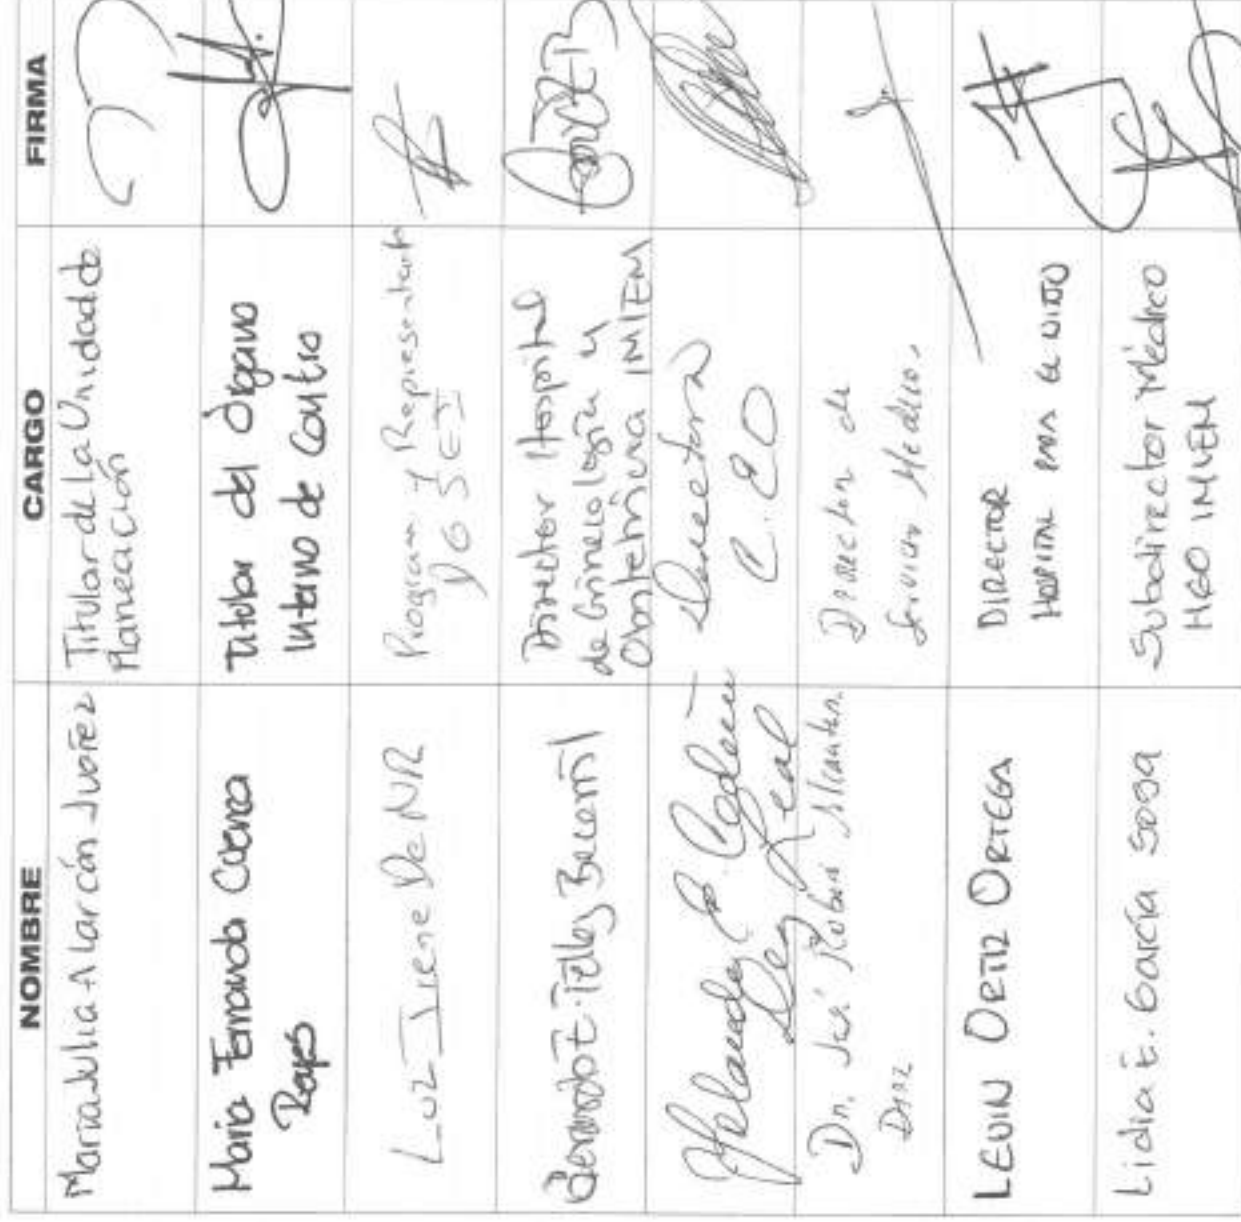 NOMBRE CARGO FIRMA
Maria Julia Alarcón Juárez Titular de la Unidad de
Planeación
Maria Fernanda Cuenca Titular del Órgano
Reyes Interno de Control
Luz Irene De NR Program y Representante
D G S E I
Bernardo E. Téllez Becerril Director Hospital
de Ginecología y
Obstetricia IMIEM
Yolanda Directora
Leal C. E O
Dr. José Rubén Alcantara Director de
Diaz Servicios Medicos.
LEVIN ORTIZ ORTEGA DIRECTOR
HOSPITAL PARA EL NIÑO
Lidia E. García Sosa Subdirector Médico
HGO IMIEM